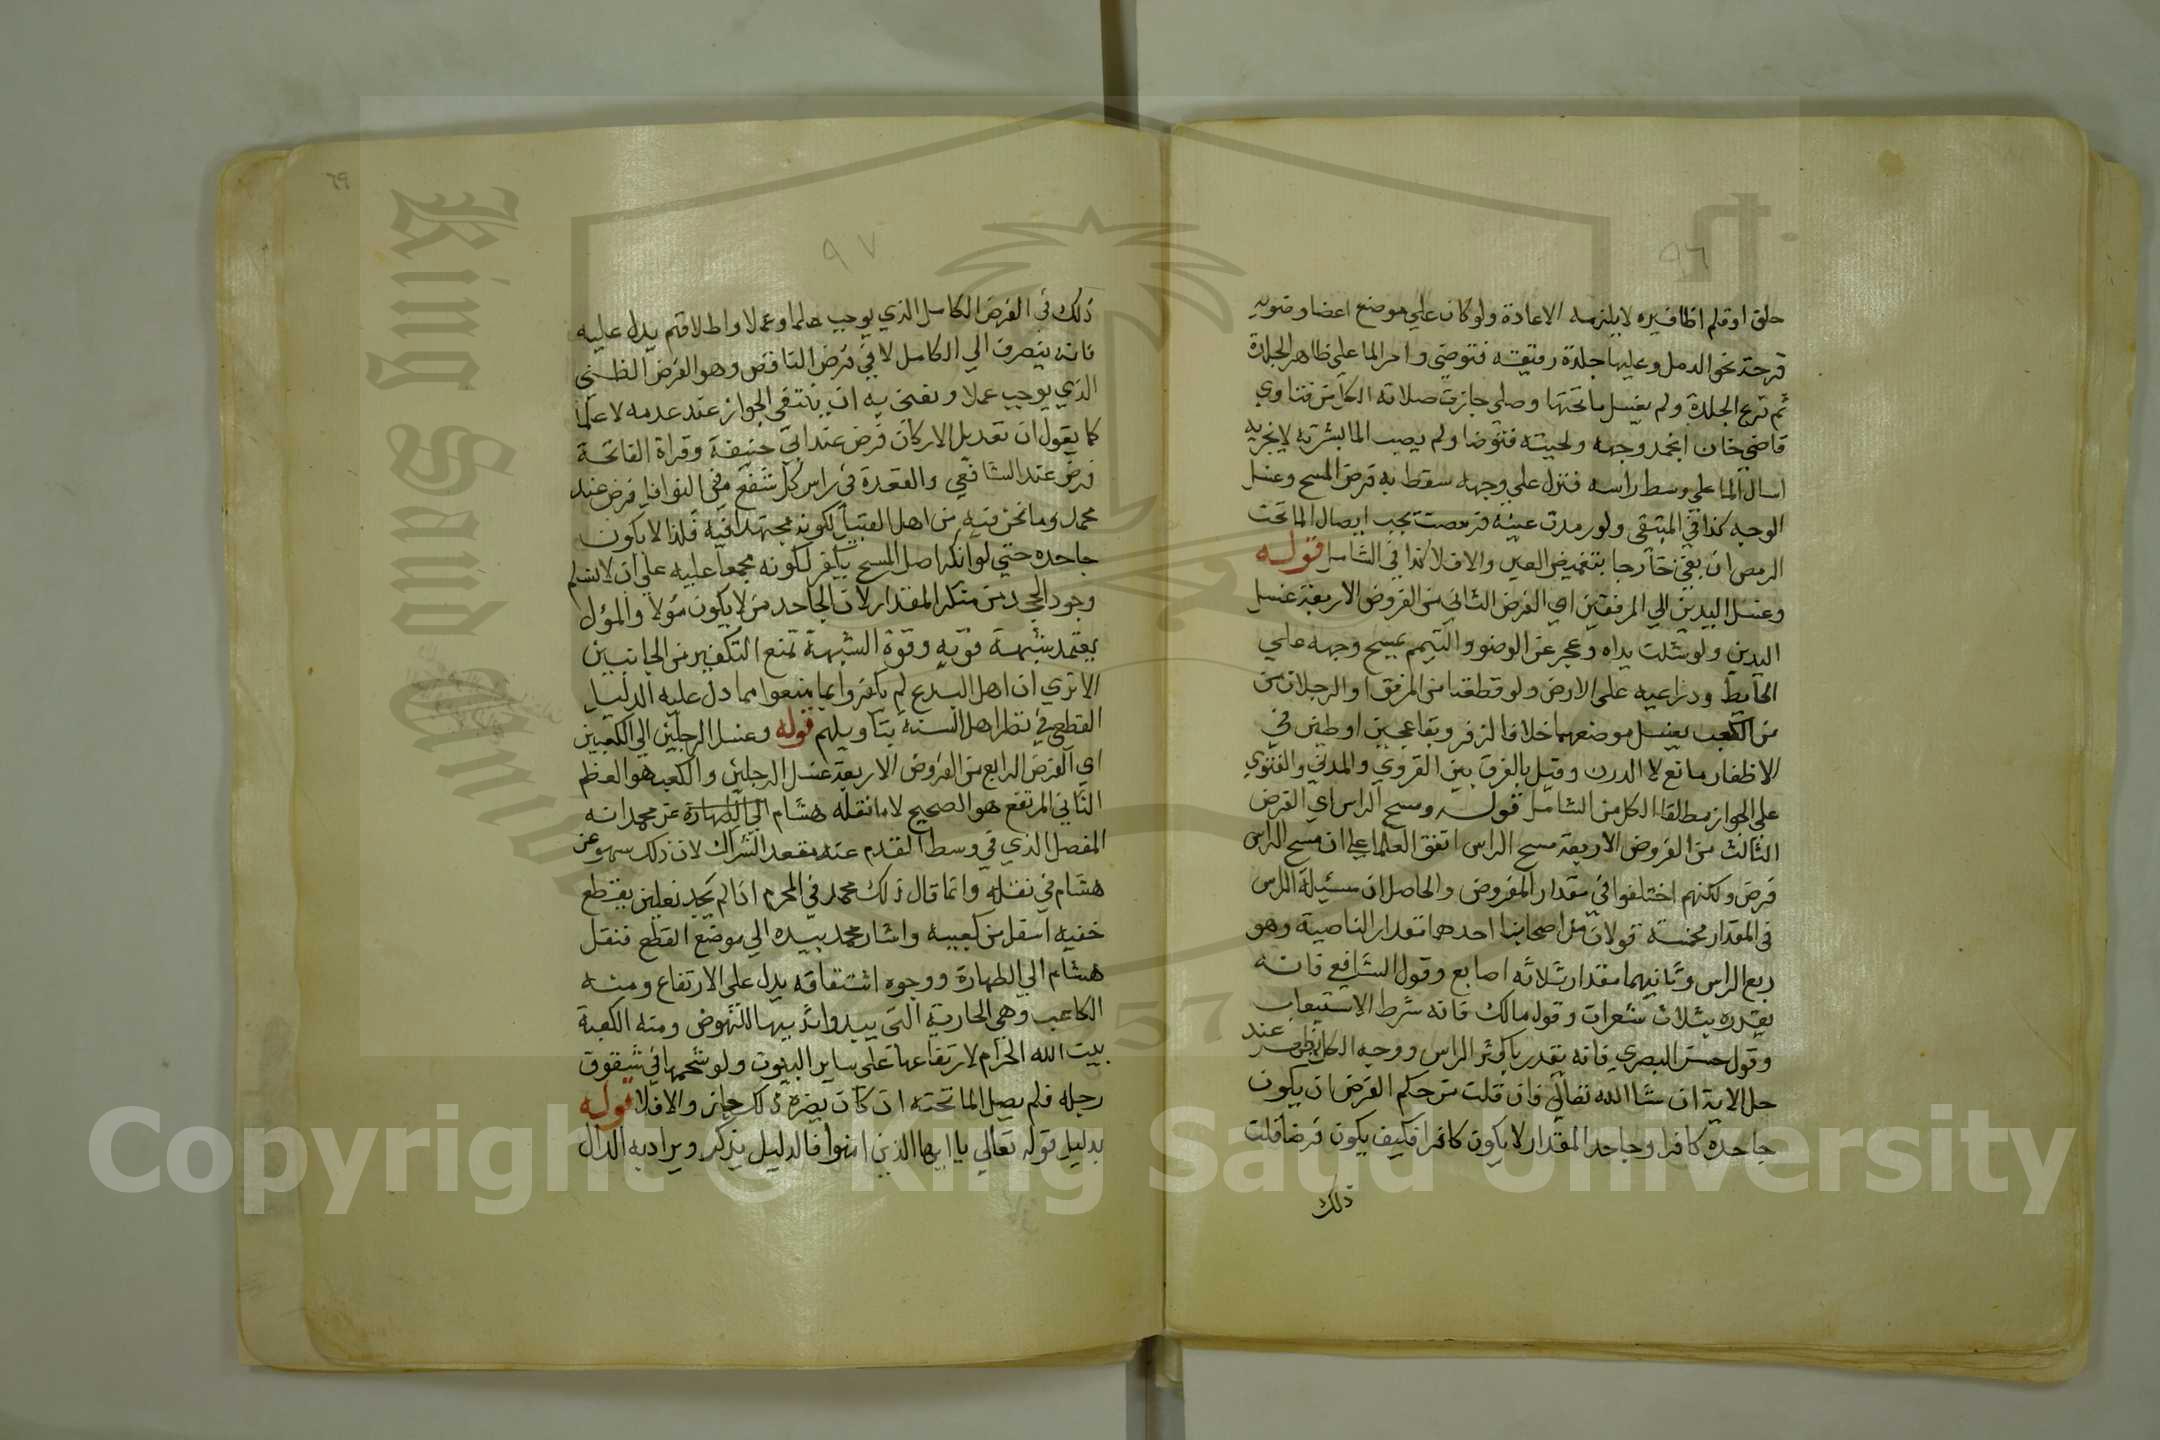 ٩٦
حلق او قلم اظافيره لا يلزمه الاعادة ولو كان علي موضع اعضا وضويه
قرحة نحو الدمل وعليها جلدة رقيقة فتوضي وامر الما علي ظاهر الجلدة
ثم نزع الجلدة ولم يغسل ما تحتها وصلي جازت صلاته الكل من فتاوي
قاضي خان انجمد وجهه ولحيته فتوضا ولم يصب الما بشرته لا يجزيه
اسال الما علي وسط راسه فنزل علي وجهه سقط به فرض المسح وغسل
الوجه كذا في المبتقى ولو رمدت عينه فرمصت يجب ايصال الما تحت
الرمص ان بقي خارجا بتغميض العين والا فلا كذا في الشامل قوله
وغسل اليدين الي المرفقين اي الفرض الثاني من الفروض الاربعة غسل
اليدين ولو شلت يداه وعجز عن الوضو والتيمم يمسح وجهه علي
الحايط وذراعيه علي الارض ولو قطعتا من المرفق او الرجلان من
من الكعب يغسل موضعهما خلافا لزفر وبقا عجين او طين في
الاظفار مانع لا الدرن وقيل بالفرق بين القروي والمدني والفتوي
علي الجواز مطلقا الكل من الشامل قوله ومسح الراس اي الفرض
الثالث من الفروض الاربعة مسح الراس اتفق العلما علي ان مسح الراس
فرض ولكنهم اختلفوا في مقدار المفروض والحاصل ان مسئلة الراس
في المقدار مخمسة قولان من اصحابنا احدهما مقدار الناصية وهو
ربع الراس وثانيهما مقدار ثلاثه اصابع وقول الشافعي فانه
يقدره بثلاث شعرات وقول مالك فانه شرط الاستيعاب
وقول حسن البصري فانه يقدر باكثر الراس ووجه الكل يظهر عند
حل الاية ان شا الله تعالي فان قلت من حكم الفرض ان يكون
جاحده كافرا وجاحد المقدار لا يكون كافرا فكيف يكون فرضا قلت
ذلك
٦٩
٩٧
ذلك في الفرض الكامل الذي يوجب علما وعملا واطلاقهم يدل عليه
فانه ينصرف الي الكامل لا في فرض الناقص وهو الفرض الظني
الذي يوجب عملا ونعني به ان ينتفي الجواز عند عدمه لا علما
كما يقول ان تعديل الاركان فرض عند ابي حنيفة وقراة الفاتحة
فرض عند الشافعي والقعدة في راس كل شفع من النوافل فرض عند
محمد وما نحن فيه من اهل القبيل لكونه مجتهدا فيه فلذا لا يكون
جاحده حتي لو انكر اصل المسح يكفر لكونه مجمعا عليه علي ان لا نسلم
وجود الجحد من منكر المقدار لان الجاحد من لا يكون مؤلا والمؤل
يعتمد شبهة قويه وقوة الشبهة تمنع التكفير من الجانبين
الا تري ان اهل البدع لم يكفروا بما منعوا مما دل عليه الدليل
القطعي في نظر اهل السنة بتاويلهم قوله وغسل الرجلين الي الكعبين
اي الفرض الرابع من الفروض الاربعة غسل الرجلين والكعب هو العظم
الناتي المرتفع هو الصحيح لا ما نقله هشام الي الطهارة عن محمد انه
المفصل الذي في وسط القدم عند مقعد الشراك لان ذلك سهو عن
هشام في نقله وانما قال ذلك محمد في المحرم اذا لم يجد نعلين يقطع
خفيه اسفل من كعبيه واشار محمد بيده الي موضع القطع فنقل
هشام الي الطهارة ووجوه اشتقاقه يدل علي الارتفاع ومنه
الكاعب وهي الجارية التي يبدوا ثديها للنهوض ومنه الكعبة
بيت الله الحرام لارتفاعها علي ساير البيوت ولو شحمها في شقوق
رجله فلم يصل الما تحته ان كان يضره ذلك جاز والا فلا قوله
بدليل قوله تعالي يا ايها الذين امنوا فالدليل يذكر ويراد به الدال
King Saud University
1957
Copyright © King Saud University